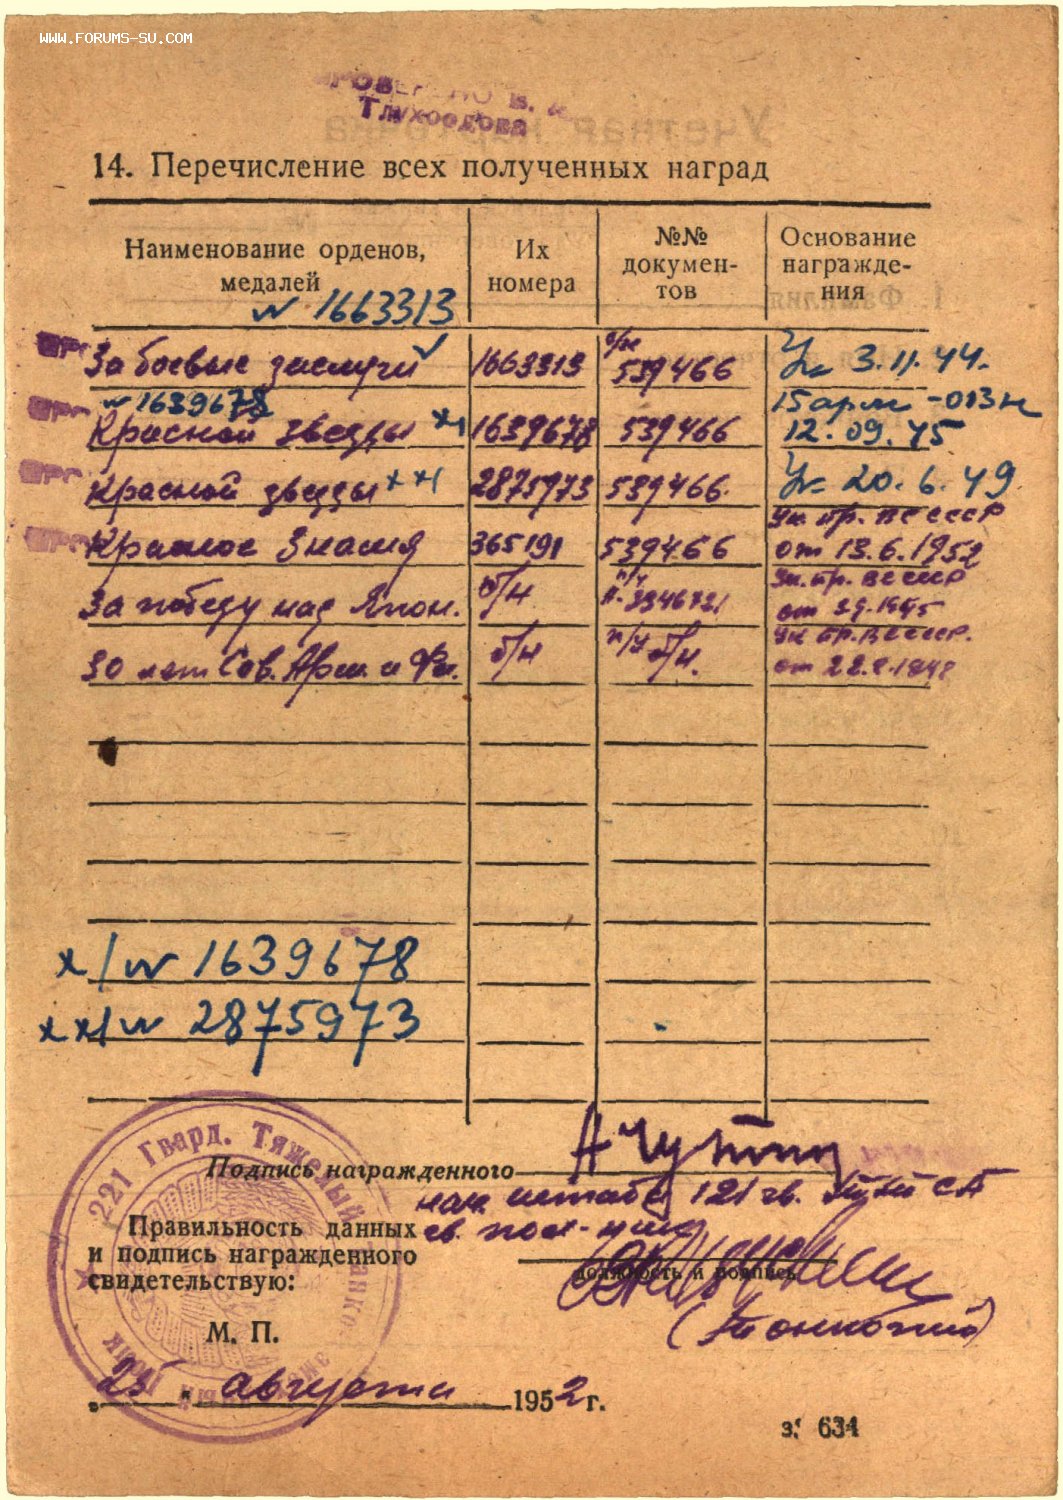 WWW.FORUMS-SU.COM
Глухоедова
14. Перечисление всех полученных наград
Наименование орденов, медалей
Их номера
№№ документов
Основание награждения
№ 1663313
За боевые заслуги 1663313 б/н 539466 Ук 3.11.44.
№ 1639678 15 арм - 013н
Красной звезды х/ 1639678 539466 12.09.45
Красной звезды хх/ 2875973 539466. Ук 20.6.49
Красное Знамя 365191 539466 Ук. пр. ВС СССР от 13.6.1952
За победу над Япон. б/н Ук. пр. ВС СССР от
30 лет Сов. Арм. и Фл. б/н п/у б/н. Ук пр. ВС СССР. от
х/ № 1639678
хх/ № 2875973
Подпись награжденного
нач штаба 121 гв. ттп СА
гв. пол-ник
Правильность данных
и подпись награжденного
свидетельствую:
должность и подпись
М. П.
221 Гвард. Тяжелый
25 августа 1952 г.
з. 634